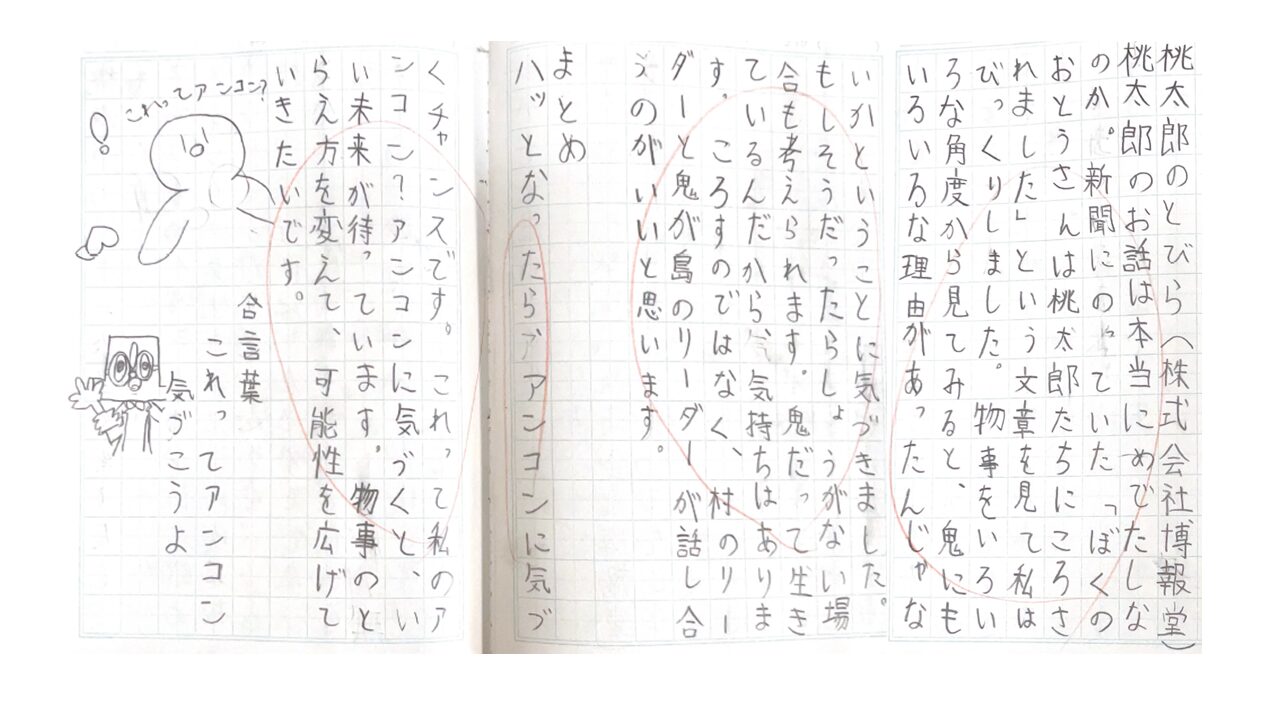 桃太郎のとびら(株式会社博報堂)
桃太郎のお話は本当にめでたしな
のか。新聞にのっていた「ぼくの
おとうさんは桃太郎たちにころさ
れました」という文章を見て私は
びっくりしました。物事をいろい
ろな角度から見てみると、鬼にも
いろいろな理由があったんじゃな
いかということに気づきました。
もしそうだったらしょうがない場
合も考えられます。鬼だって生き
ているんだから気持ちはありま
す。ころすのではなく、村のリー
ダーと鬼が島のリーダーが話し合
うのがいいと思います。
まとめ
ハッとなったらアンコンに気づ
くチャンスです。これって私のア
ンコン?アンコンに気づくと、い
い未来が待っています。物事のと
らえ方を変えて、可能性を広げて
いきたいです。
合言葉
これってアンコン
気づこうよ
これってアンコン?